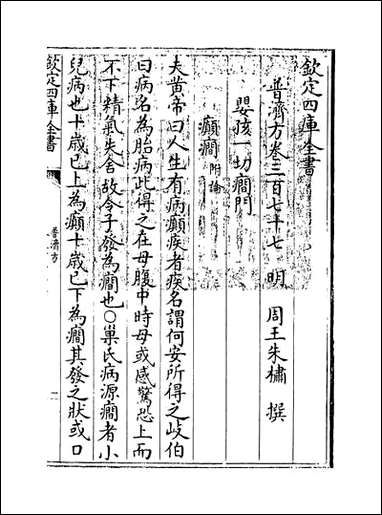 欽定四庫全書
普濟方卷三百七十七　明　周王朱橚　撰
嬰孩一切癎門
癲癎附論
夫黄帝曰人生有病癲疾者疾名謂何安所得之歧伯
曰病名為胎病此得之在母腹中時母或感驚恐上而
不下精氣失舍故令子發為癎也○巢氏病源癎者小
兒病也十歲已上為癲十歲已下為癎其發之狀或口
欽定四庫全書
普濟方